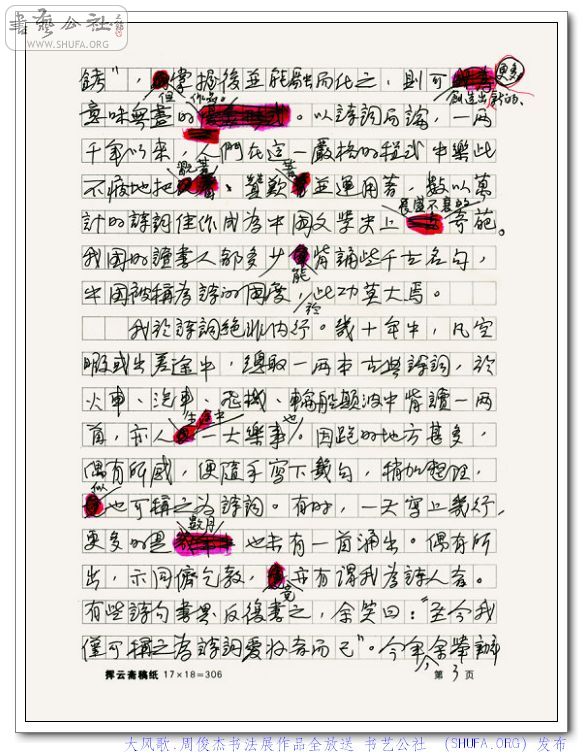 書藝公社
WWW.SHUFA.ORG
銬"，但掌握後並能融而化之，則可創造出新的、更多
意味無盡的作品。以詩詞而論，一兩
千年以來，人們在這一嚴格的程式中樂此
不疲地把翫著、贊歎著並運用著，數以萬
計的詩詞佳作成為中國文學史上長盛不衰的奇葩。
我國的讀書人都多少能背誦些千古名句，
中國被稱為詩的國度，於此功莫大焉。
我於詩詞絕非内行。幾十年中，凡空
暇或出差途中，總取一兩本古典詩詞，於
火車、汽車、飛機、輪船顛波中背讀一兩
首，亦人生途中一大樂事也。因跑的地方甚多，
偶有所感，便隨手寫下幾句，稍加整理，
似也可稱之為詩詞。有時，一天寫上幾行，
更多的是數月也未有一首涌出。偶有所
出，亦同儕乞教，竟亦有謂我為詩人者。
有些詩句書界反復書之，余笑曰："至今我
僅可稱之為詩詞愛好者而已"。今年余舉辦
挥云斋稿纸 17×18=306 第3页
大风歌.周俊杰书法展作品全放送 书艺公社 (SHUFA.ORG) 发布